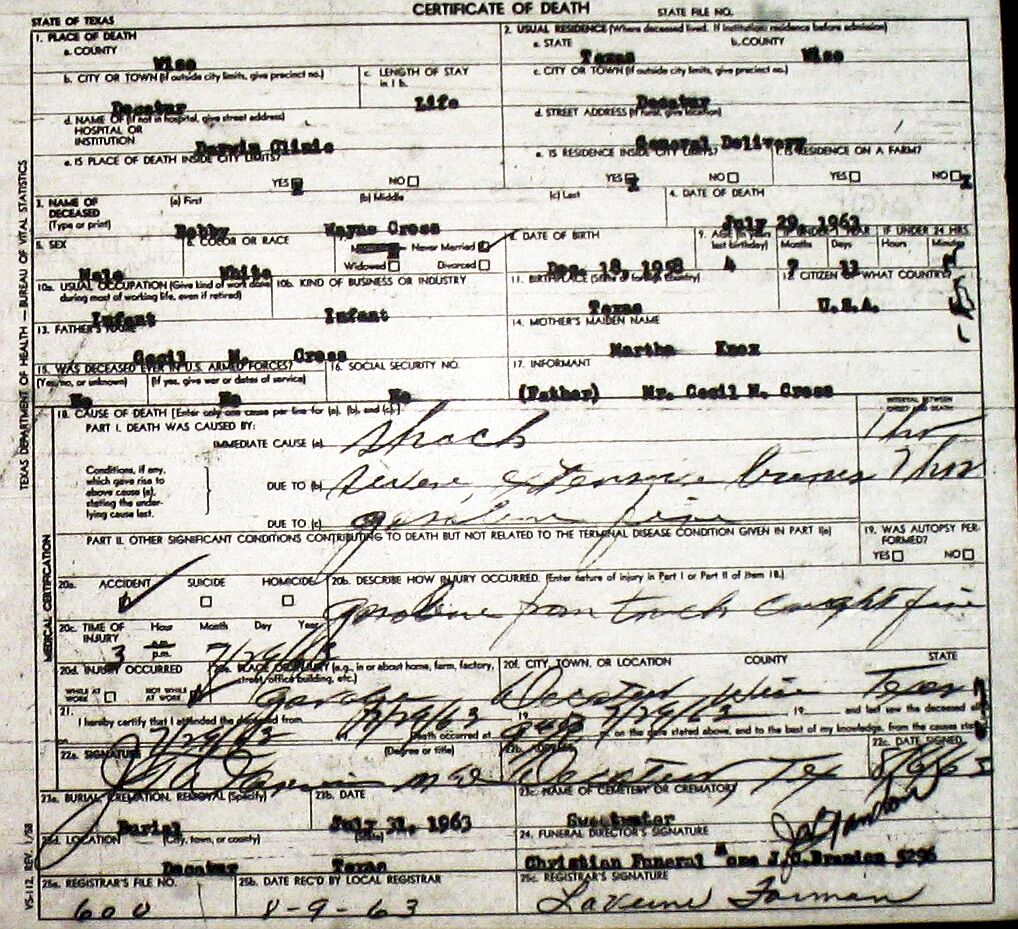 CERTIFICATE OF DEATH
STATE OF TEXAS STATE FILE NO.
1. PLACE OF DEATH
a. COUNTY
Wise
2. USUAL RESIDENCE (Where deceased lived. If institution: residence before admission)
a. STATE b. COUNTY
Texas Wise
b. CITY OR TOWN (If outside city limits, give precinct no.)
Decatur
c. LENGTH OF STAY in 1 b.
Life
c. CITY OR TOWN (If outside city limits, give precinct no.)
Decatur
d. NAME OF (If not in hospital, give street address)
HOSPITAL OR
INSTITUTION
Darwin Clinic
d. STREET ADDRESS (If rural, give location)
General Delivery
e. IS PLACE OF DEATH INSIDE CITY LIMITS?
YES X NO
e. IS RESIDENCE INSIDE CITY LIMITS?
YES X NO
f. IS RESIDENCE ON A FARM?
YES NO X
3. NAME OF
DECEASED
(Type or print)
(a) First (b) Middle (c) Last
Bobby Wayne Cross
4. DATE OF DEATH
July 29, 1963
5. SEX
Male
6. COLOR OR RACE
White
7. Never Married
Widowed Divorced
8. DATE OF BIRTH
Dec. 18, 1958
9. AGE (In years last birthday) IF UNDER 1 YEAR IF UNDER 24 HRS.
Months Days Hours Minutes
4 7 11
10a. USUAL OCCUPATION (Give kind of work done
during most of working life, even if retired)
Infant
10b. KIND OF BUSINESS OR INDUSTRY
Infant
11. BIRTHPLACE (State or foreign country)
Texas
12. CITIZEN OF WHAT COUNTRY?
U.S.A.
13. FATHER'S NAME
Cecil H. Cross
14. MOTHER'S MAIDEN NAME
Martha Knox
15. WAS DECEASED EVER IN U.S. ARMED FORCES?
(Yes, no, or unknown) (If yes, give war or dates of service)
No No
16. SOCIAL SECURITY NO.
No
17. INFORMANT
(Father) Mr. Cecil H. Cross
18. CAUSE OF DEATH [Enter only one cause per line for (a), (b), and (c).]
INTERVAL BETWEEN
ONSET AND DEATH
PART I. DEATH WAS CAUSED BY:
IMMEDIATE CAUSE (a) shock 1 hr
Conditions, if any,
which gave rise to
above cause (a),
stating the under-
lying cause last.
DUE TO (b) severe, extensive burns
DUE TO (c) gasoline fire
PART II. OTHER SIGNIFICANT CONDITIONS CONTRIBUTING TO DEATH BUT NOT RELATED TO THE TERMINAL DISEASE CONDITION GIVEN IN PART I(a)
19. WAS AUTOPSY PER-
FORMED?
YES NO
20a. ACCIDENT SUICIDE HOMICIDE
20b. DESCRIBE HOW INJURY OCCURRED. (Enter nature of injury in Part I or Part II of item 18.)
gasoline from truck caught fire
20c. TIME OF
INJURY
Hour Month Day Year
a.m.
p.m.
3 7/29/63
20d. INJURY OCCURRED
WHILE AT WORK NOT WHILE AT WORK
20e. PLACE OF INJURY (e.g., in or about home, farm, factory,
street, office building, etc.)
Garage
20f. CITY, TOWN, OR LOCATION COUNTY STATE
Decatur Wise Texas
21. I hereby certify that I attended the deceased from 7/29/63 19 7/29/63 19 and last saw the deceased
on 7/29/63 Death occurred at on the date stated above, and to the best of my knowledge, from the causes
22a. SIGNATURE (Degree or title)
22b. ADDRESS
Decatur Tex
22c. DATE SIGNED
23a. BURIAL, CREMATION, REMOVAL (Specify)
Burial
23b. DATE
July 31, 1963
23c. NAME OF CEMETERY OR CREMATORY
Sweetwater
23d. LOCATION (City, town, or county) (State)
Decatur Texas
24. FUNERAL DIRECTOR'S SIGNATURE
Christian Funeral Home J.G. Brandon 5296
25a. REGISTRAR'S FILE NO.
600
25b. DATE REC'D BY LOCAL REGISTRAR
8-9-63
25c. REGISTRAR'S SIGNATURE
Laverne Forman
TEXAS DEPARTMENT OF HEALTH — BUREAU OF VITAL STATISTICS
MEDICAL CERTIFICATION
VS-112, REV. 1/58